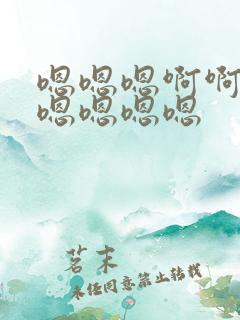 嗯嗯嗯啊啊
嗯嗯嗯嗯
茗末
未经同意禁止转载